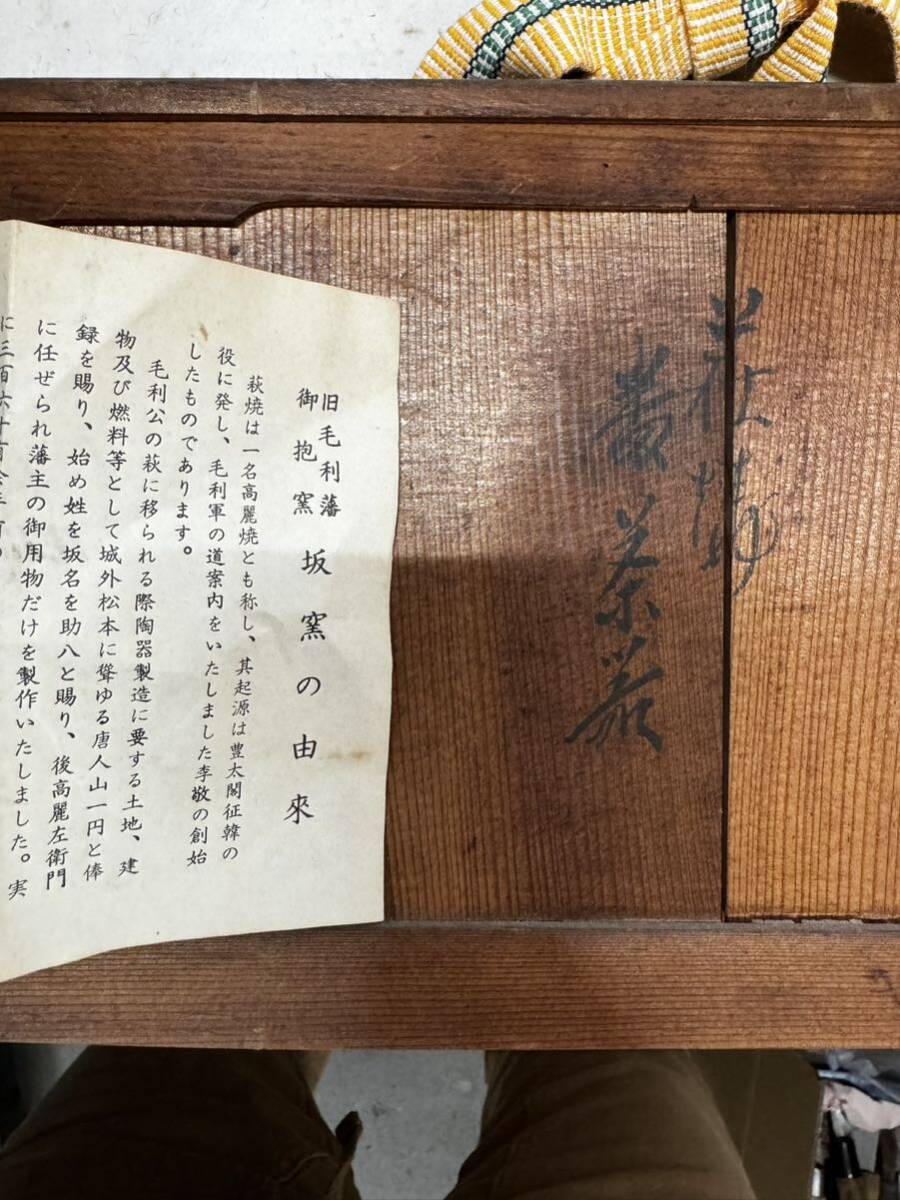 萩焼
番茶器
旧毛利藩
御抱窯
坂窯の由來
萩焼は一名高麗焼とも称し、其起源は豊太閤征韓の
役に発し、毛利軍の道案内をいたしました李敬の創始
したものであります。
毛利公の萩に移られる際陶器製造に要する土地、建
物及び燃料等として城外松本に聳ゆる唐人山一円と俸
録を賜り、始め姓を坂名を助八と賜り、後高麗左衛門
に任ぜられ藩主の御用物だけを製作いたしました。実
に三百六十有余年